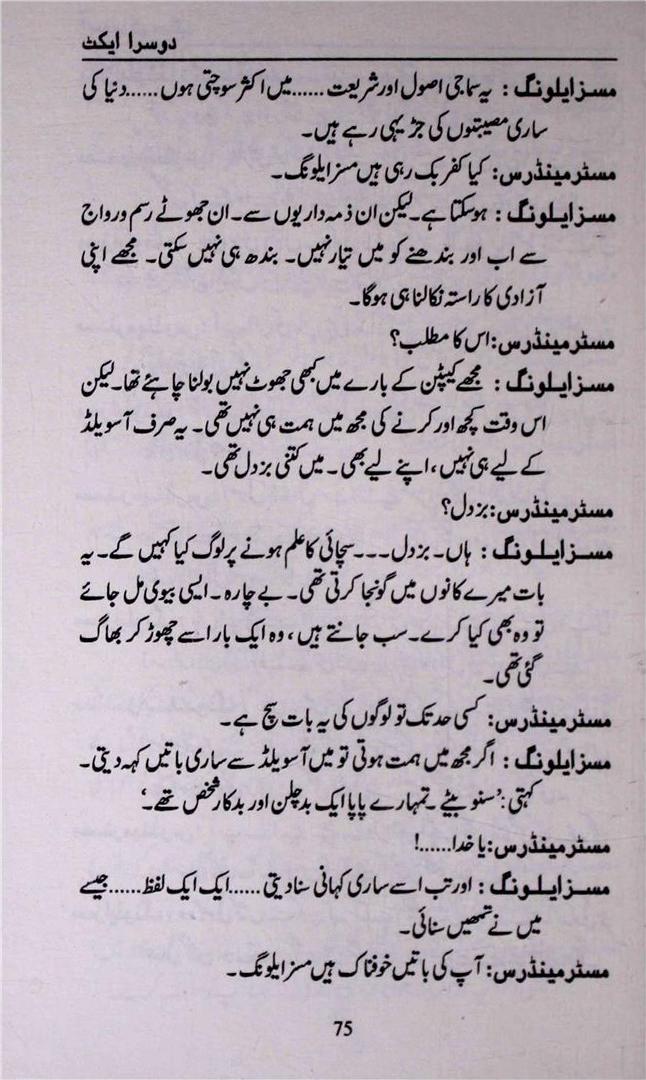 دوسرا ایکٹ
مسز ایلونگ : یہ سماجی اصول اور شریعت ......میں اکثر سوچتی ہوں......دنیا کی
ساری مصیبتوں کی جڑ یہی رہے ہیں۔
مسٹر مینڈرس: کیا کفر بک رہی ہیں مسز ایلونگ۔
مسز ایلونگ : ہوسکتا ہے۔ لیکن ان ذمہ داریوں سے۔ ان جھوٹے رسم و رواج
سے اب اور بندھنے کو میں تیار نہیں۔ بندھ ہی نہیں سکتی۔ مجھے اپنی
آزادی کا راستہ نکالنا ہی ہوگا۔
مسٹر مینڈرس: اس کا مطلب؟
مسز ایلونگ : مجھے کیپٹن کے بارے میں کبھی جھوٹ نہیں بولنا چاہئے تھا۔ لیکن
اس وقت کچھ اور کرنے کی مجھ میں ہمت ہی نہیں تھی۔ یہ صرف آسویلڈ
کے لیے ہی نہیں، اپنے لیے بھی۔ میں کتنی بزدل تھی۔
مسٹر مینڈرس: بزدل؟
مسز ایلونگ : ہاں۔ بزدل۔۔۔ سچائی کا علم ہونے پر لوگ کیا کہیں گے۔ یہ
بات میرے کانوں میں گونجا کرتی تھی۔ بے چارہ۔ ایسی بیوی مل جائے
تو وہ بھی کیا کرے۔ سب جانتے ہیں، وہ ایک بار اسے چھوڑ کر بھاگ
گئی تھی۔
مسٹر مینڈرس: کسی حد تک تو لوگوں کی یہ بات سچ ہے۔
مسز ایلونگ : اگر مجھ میں ہمت ہوتی تو میں آسویلڈ سے ساری باتیں کہہ دیتی۔
کہتی : ’سنو بیٹے۔ تمہارے پاپا ایک بدچلن اور بدکار شخص تھے۔‘
مسٹر مینڈرس: یا خدا......!
مسز ایلونگ : اور تب اسے ساری کہانی سنا دیتی......ایک ایک لفظ......جیسے
میں نے تمھیں سنائی۔
مسٹر مینڈرس: آپ کی باتیں خوفناک ہیں مسز ایلونگ۔
75